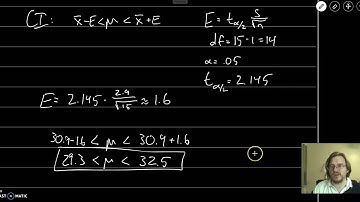 CI: x̄-E<μ< x̄+E
E = t_{α/2} s/√n
df = 15-1 = 14
α = .05
t_{α/2} = 2.145
E = 2.145 · 2.9/√15 ≈ 1.6
30.9-1.6 < μ < 30.9+1.6
29.3 < μ < 32.5